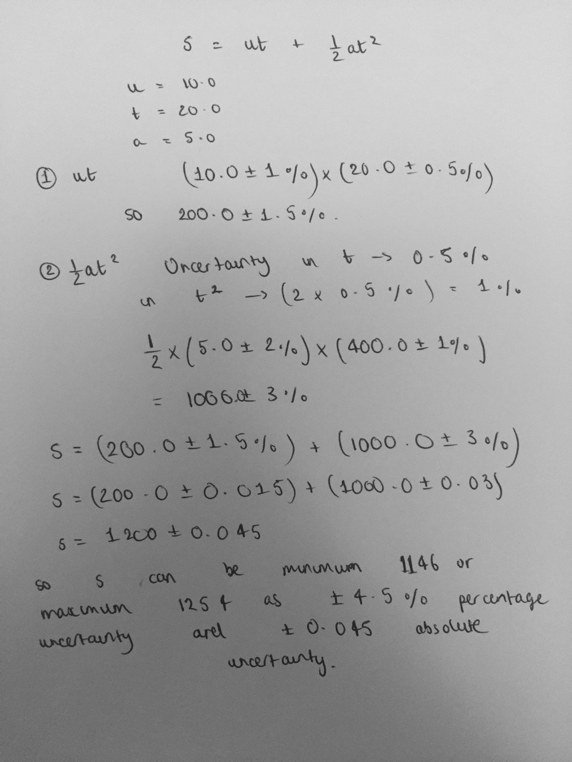 s = ut + ½at²
u = 10.0
t = 20.0
a = 5.0
① ut (10.0 ± 1%) × (20.0 ± 0.5%)
so 200.0 ± 1.5%.
② ½at² Uncertainty in t → 0.5%
in t² → (2 × 0.5%) = 1%
½ × (5.0 ± 2%) × (400.0 ± 1%)
= 1000.0 ± 3%
s = (200.0 ± 1.5%) + (1000.0 ± 3%)
s = (200.0 ± 0.015) + (1000.0 ± 0.03)
s = 1200 ± 0.045
so s can be minimum 1146 or
maximum 1254 as ± 4.5% percentage
uncertainty and ± 0.045 absolute
uncertainty.